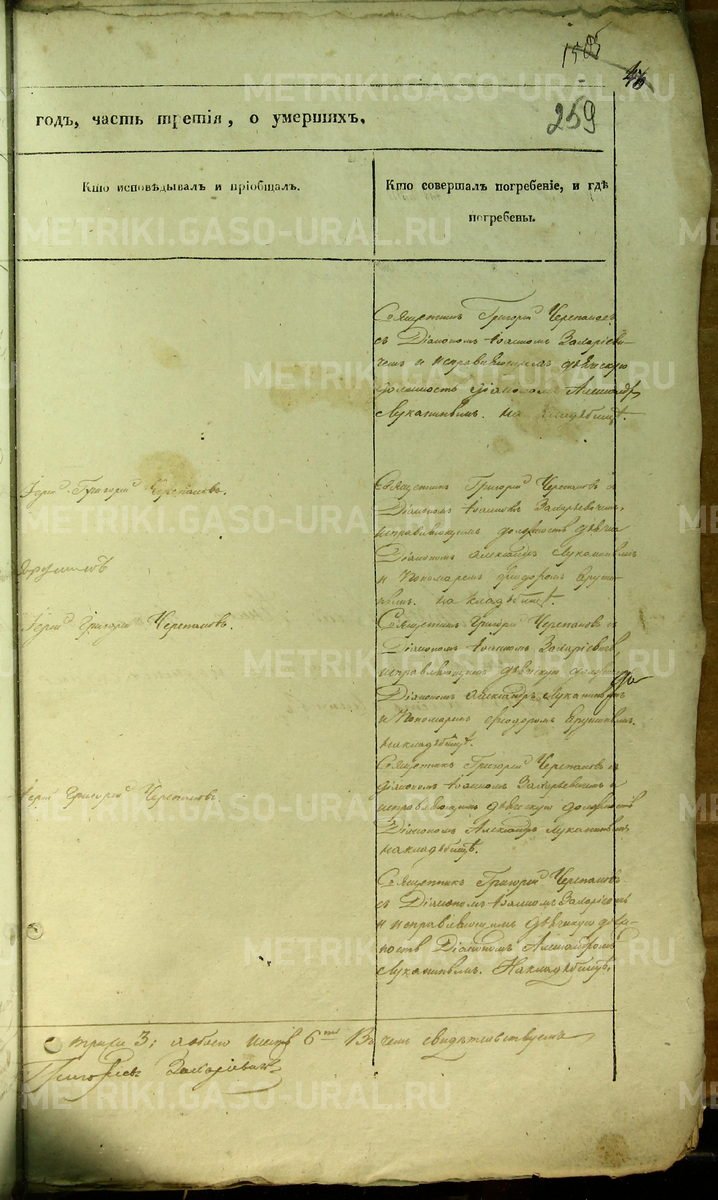 259
годъ, часть третія, о умершихъ.
Кто исповѣдывалъ и пріобщалъ.
Кто совершалъ погребеніе, и гдѣ
погребены.
Священникъ Григорій Черепановъ
съ Діакономъ Іоанномъ Захаріеви-
чемъ и исправляющимъ дьяческую
должность Діакономъ Александр
Луканинымъ. на кладбищѣ.
Іерей Григорій Черепановъ.
Священникъ Григорій Черепановъ с
Діакономъ Іоанномъ Захарьевичемъ,
исправляющимъ должность дьячка
Діакономъ Луканинымъ
и Пономаремъ Феодоромъ
на кладбищѣ.
Іерей Григорій Черепановъ.
Священникъ Григорій Черепановъ с
Діакономъ Іоанномъ
исправляющимъ дьяческую
Діакономъ Александр Лукаинымъ
и Пономаремъ Феодоромъ
на кладбищѣ.
Іерей Григорій Черепановъ
Священникъ Григорій Черепановъ с
Діакономъ Іоанномъ Захарьевичемъ и
исправляющимъ дьяческую должность
Діакономъ Александр Лукаинымъ
на кладбищѣ.
Священникъ Григорій Черепановъ
съ Діакономъ Іоанномъ
и исправляющимъ дьяческую
Діакономъ Александромъ
Лукаинымъ. На кладбищѣ.
3; а обоего шесть 6 Въ чемъ свидѣтельствуемъ
METRIKI.GASO-URAL.RU